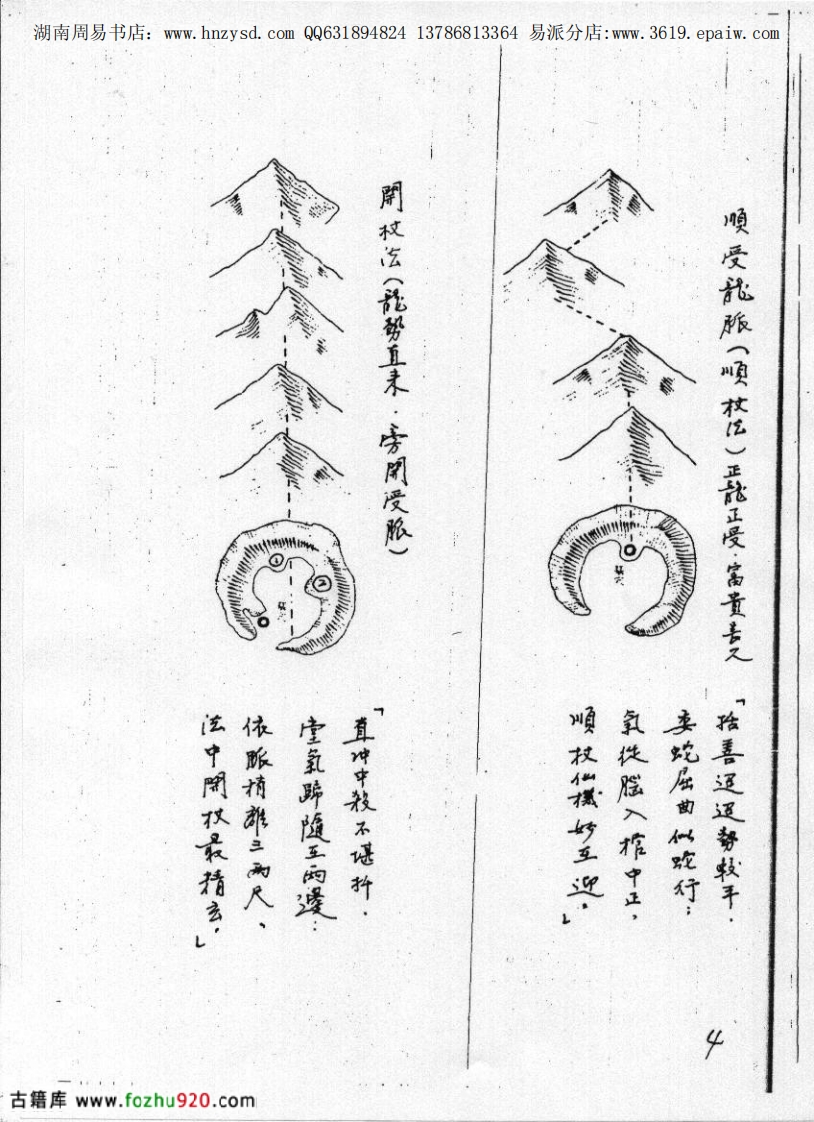 湖南周易书店：www.hnzysd.com QQ631894824 13786813364 易派分店:www.3619.epaiw.com
順受龍脈（順杖法）正龍正受．富貴善久
「捨善逆逆勢較平．
委蛇屈曲似蛇行；
氣從腦入棺中正，
順杖仙機妙互迎。」
開杖法（龍勢直来．旁開受脈）
①
②
「直冲中殺不堪扦．
堂氣歸隨互兩邊：
依脈稍離三兩尺、
法中開杖最精玄。」
4
古籍库 www.fozhu920.com